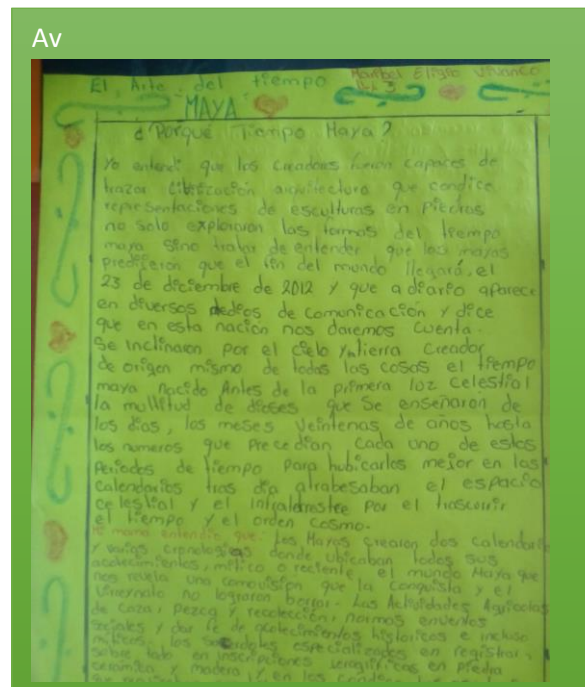 Av
El Arte del tiempo Maribel Eligio Vivanco
MAYA 3
¿Porqué Tiempo Maya?
Yo entendi que los creadores fueron capaces de
trazar arquitectura que condice
representaciones de esculturas en Piedras
no solo exploraron las formas del tiempo
maya sino tratar de entender que los mayas
predijeron que el fin del mundo llegará, el
23 de diciembre de 2012 y que a diario aparece
en diversos medios de comunicación y dice
que en esta nación nos daremos cuenta.
Se inclinaron por el cielo y tierra creador
de origen mismo de todas las cosas el tiempo
maya nacido Antes de la primera loz celestial
la multitud de dioses que se enseñaron de
los dias, los meses veintenas de años hasta
los numeros que precedian cada uno de estos
Periodos de tiempo para hubicarlos mejor en los
calendarios tras dia atrabesaban el espacio
celestial y el por el trascurrir
el tiempo y el orden cosmo.
Mi mama entendio que: Los Mayas crearon dos calendario
y varias cronologias donde ubicaban todos sus
acotecimientos, mitico o reciente, el mundo Maya que
nos revela una comovision que la Conquista y el
Virreynato no lograron borrar. Las Actividades Agricolas
de caza, pezca y recolección, normas
sociales y dar fe de acotecimientos historicos e incluso
miticos. los Sacerdotes especializados en registrar,
sobre todo en inscripciones en piedra
ceramica y madera y en los